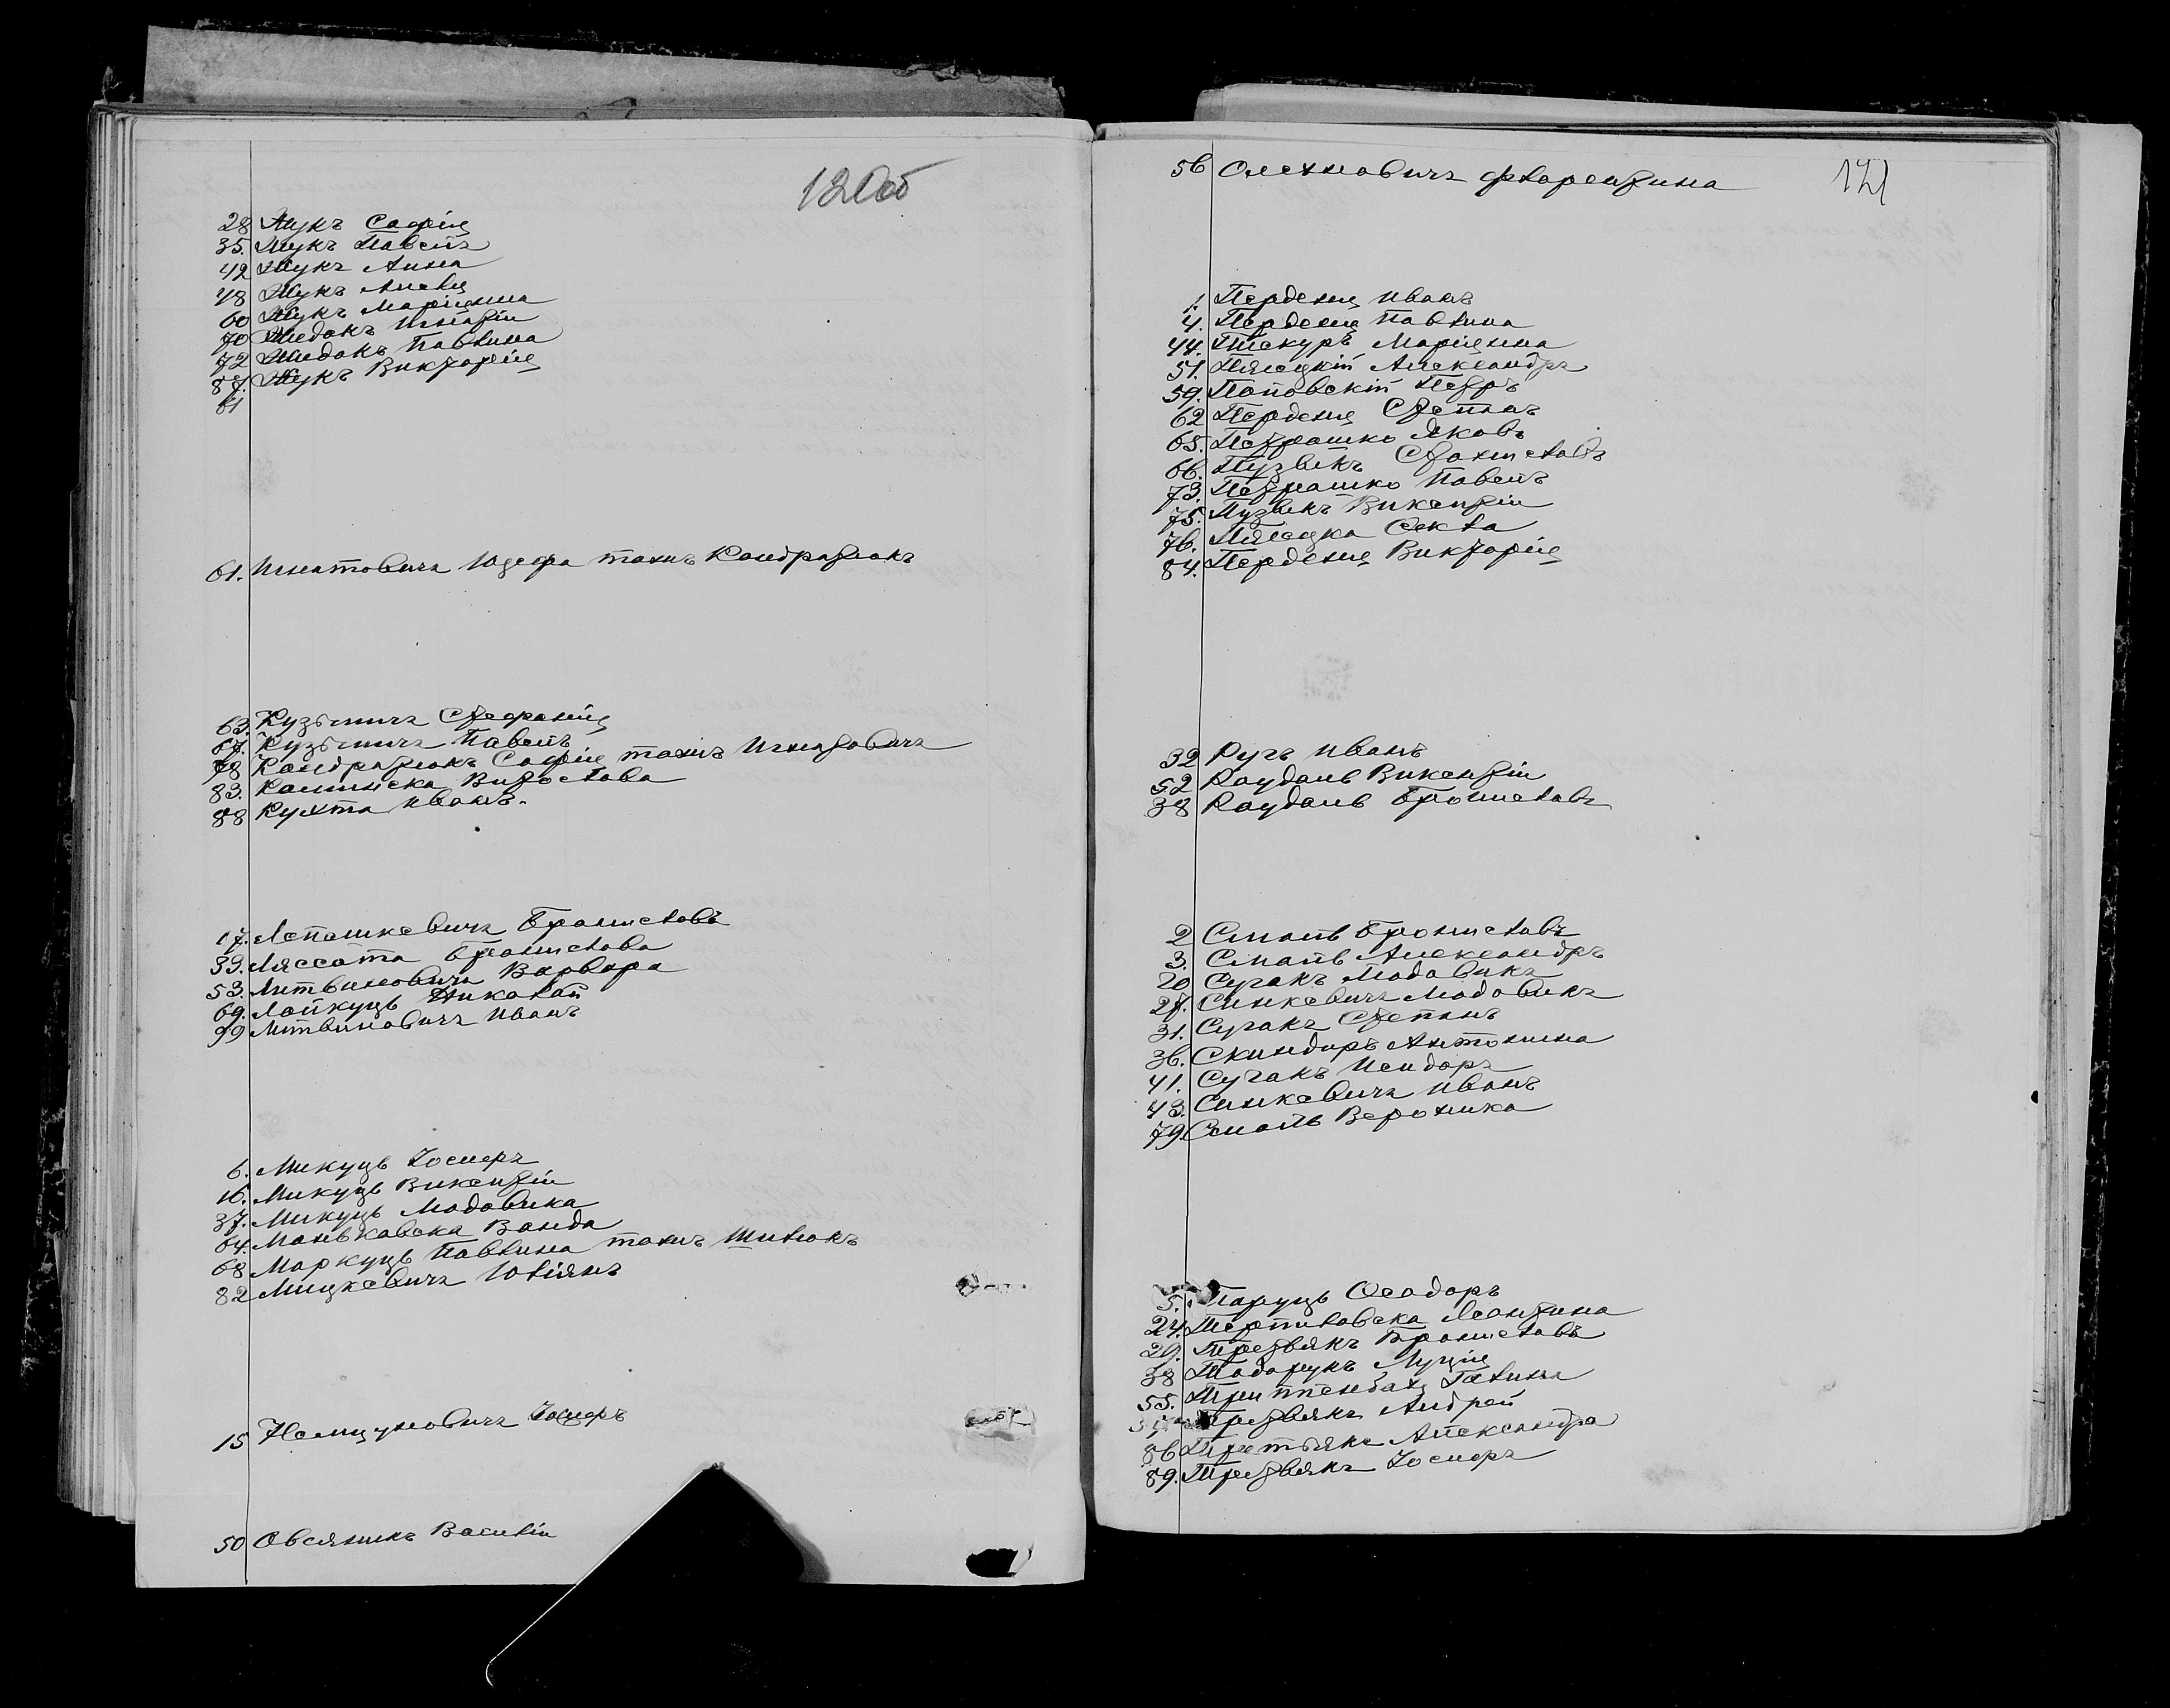 120об
28 Жукъ Софія
35. Жукъ Павелъ
42 Жукъ Анна
48 Жукъ Анеля
60 Жукъ Маріянна
70 Жидокъ Игнатій
72 Жидокъ Павлина
87. Жукъ Викторія
61
61. Игнатовичъ Юзефа тожъ Кондратюкъ
63. Кузьмичъ Стефанія
67. Кузьмичъ Павелъ
78 Кондратюкъ Софія тожъ Игнатовичъ
83. Каминска Витослава
88 Кухта Иванъ.
17. Лепешкевичъ Брониславъ
33. Ляссота Бронислава
53. Литвиновичъ Варвара
69. Лойкуць Николай
99 Литвиновичъ Иванъ
6. Микуць Іосифъ
16. Микуць Викентій
37. Микуць Людовика
64. Маньковска Ванда
68 Маркуць Павлина тожъ Шилюкъ
82 Мицкевичъ Юліянъ
15 Немцуновичъ Іосифъ
50 Овсяникъ Василій
121
56 Олехновичъ Флорентина
1. Перденя Иванъ
4. Перденя Павлина
44. Пискуръ Маріянна
51. Пясецкій Александръ
59. Поповскій Петръ
62 Перденя Степанъ
65. Петрашко Яковъ
66. Пузвикъ Станиславъ
73. Петрашко Павелъ
75. Пузвикъ Викентій
76. Пясецка Фекла
84. Перденя Викторія
32 Ругъ Иванъ
52 Раудань Викентій
38 Раудань Брониславъ
2 Смаль Брониславъ
3. Смаль Александръ
20 Сугакъ Людовикъ
27. Синкевичъ Людовикъ
31. Сугакъ Степанъ
36. Скиндиръ Антонина
41. Сугакъ Исидоръ
43. Синкевичъ Иванъ
79. Смаль Вероника
5. Таруць Феодоръ
24. Терпиловска Леонтина
29. Третьякъ Брониславъ
38 Тодорукъ Луція
55. Триппенбахъ Галина
Третьякъ Андрей
86 Третьякъ Александра
89. Третьякъ Іосифъ